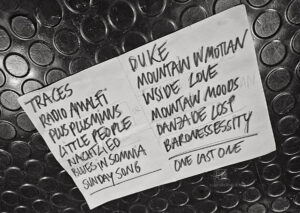 TRACES
RADIO AMALFI
PLUSPLUSMINUS
LITTLE PEOPLE
NACHTLIED
BLUES IN SOMNIA
SUNDAY SONG
DUKE
MOUNTAIN IN MOTIAN
INSIDE LOVE
MOUNTAIN MOODS
DANZA DE LOSP
BARONESSESSITY
ONE LAST ONE